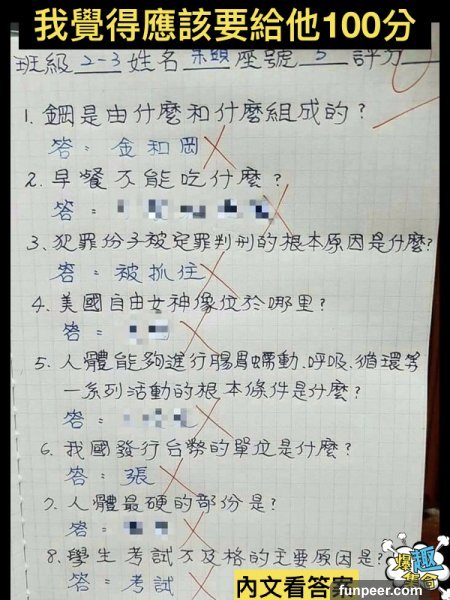 我覺得應該要給他100分
班級 2-3 姓名 呆頭 座號 5 評分 0
1. 鋼是由什麼和什麼組成的?
答: 金和岡
2. 早餐不能吃什麼?
答:
3. 犯罪份子被定罪判刑的根本原因是什麼?
答: 被抓住
4. 美國自由女神像位於哪里?
答:
5. 人體能夠進行腸胃蠕動、呼吸、循環等
一系列活動的根本條件是什麼?
答:
6. 我國發行台幣的單位是什麼?
答: 張
7. 人體最硬的部份是?
答:
8. 學生考試不及格的主要原因是?
答: 考試
內文看答案
爆趣集合
funpeer.com